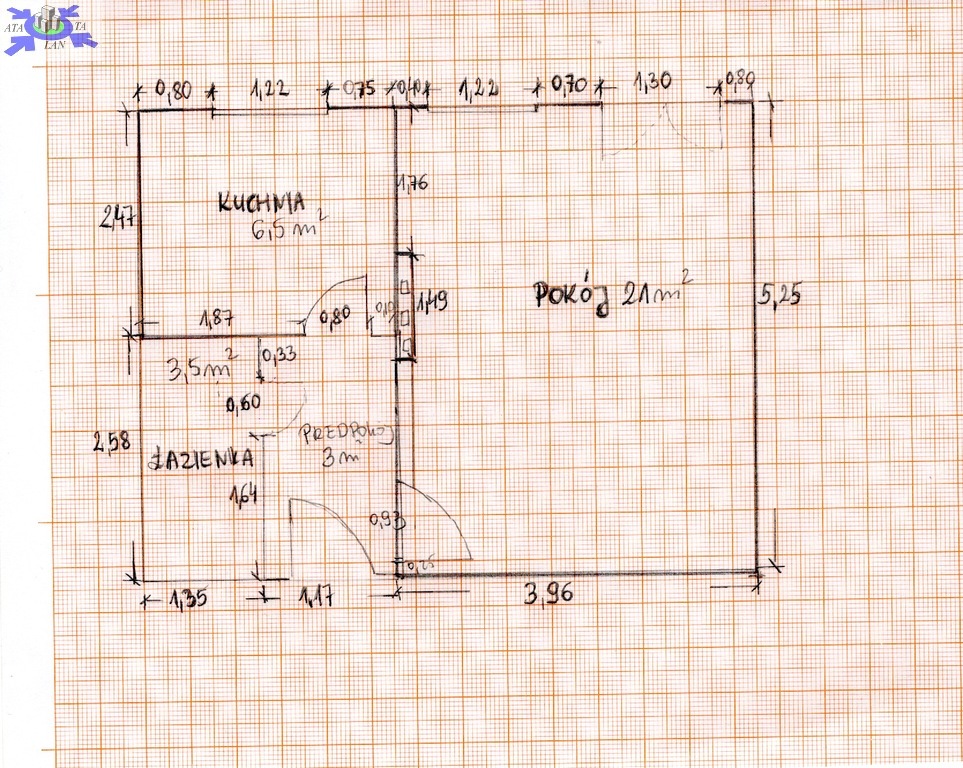 ATA TA
LAN
0,80 1,22 0,75 0,40 1,22 0,70 1,30 0,80
1,76
2,47
KUCHNIA
6,5 m²
POKÓJ 21m²
5,25
1,49
1,87
0,80
3,5m²
0,33
0,60
2,58
PRZEDPOKÓJ
3 m²
ŁAZIENKA
1,64
0,93
0,25
1,35
1,17
3,96